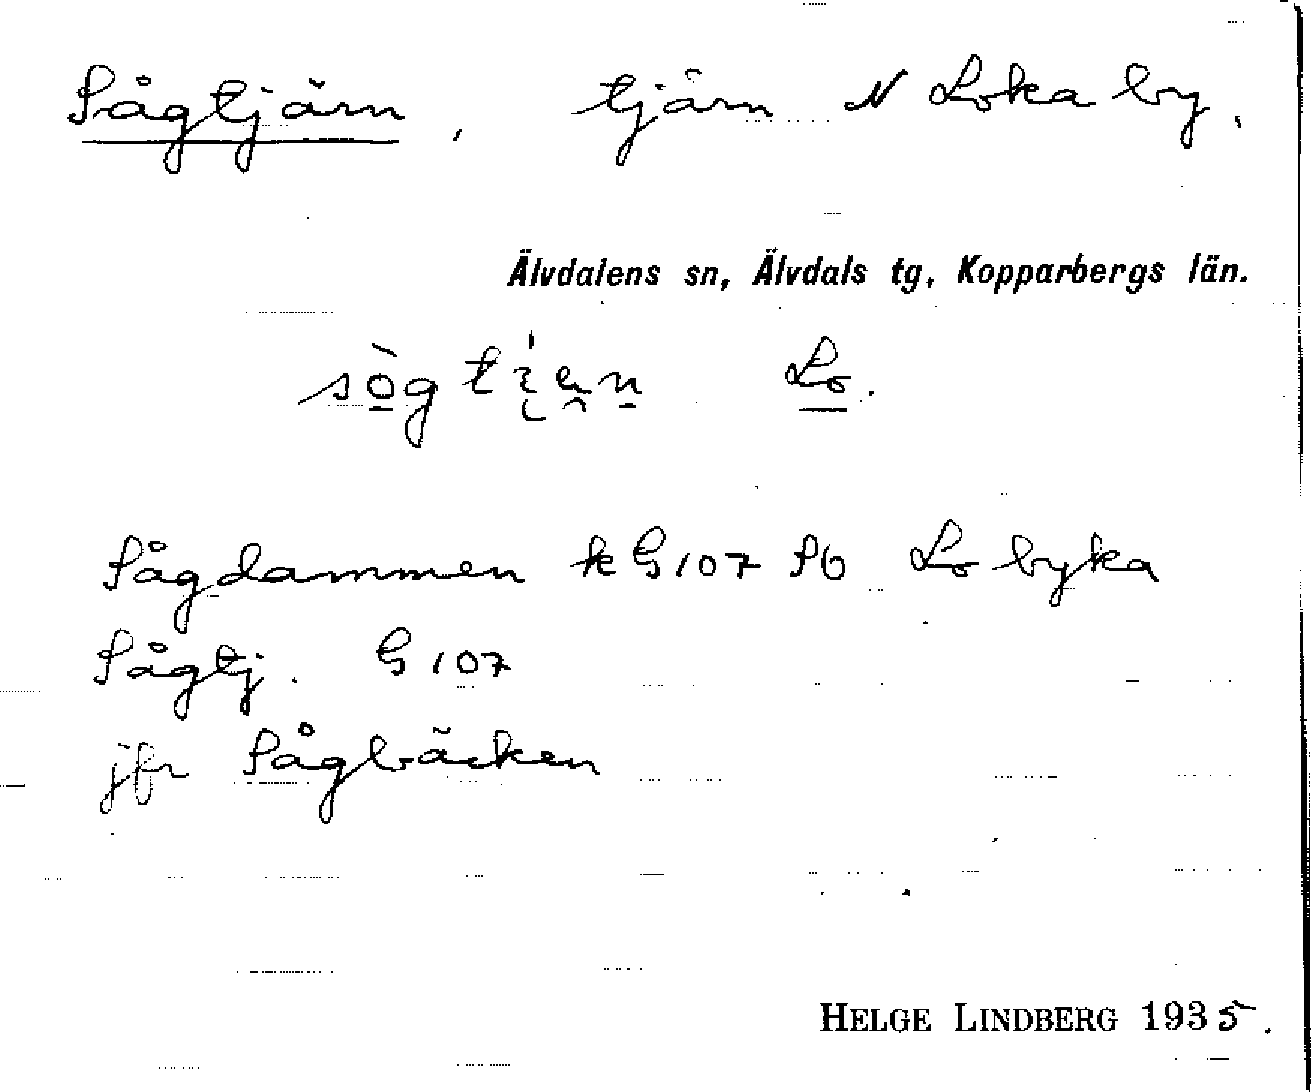 Sågtjärn, tjärn N Loka by.
Älvdalens sn, Älvdals tg, Kopparbergs län.
Lo.
Sågdammen k G107 Sb Lo byka
Sågtj. G107
jfr Sågbäcken
HELGE LINDBERG 1935.